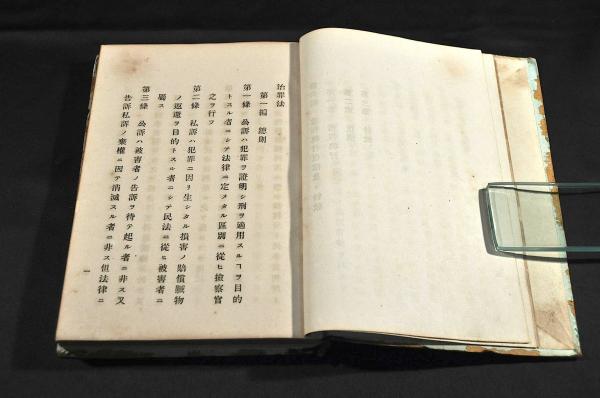 治罪法
第一編 總則
第一條 公訴ハ犯罪ヲ證明シ刑ヲ適用スルヿヲ目的
トスル者ニシテ法律ニ定メタル區別ニ從ヒ撿察官
之ヲ行フ
第二條 私訴ハ犯罪ニ因リ生シタル損害ノ賠償贓物
ノ返還ヲ目的トスル者ニシテ民法ニ從ヒ被害者ニ
屬ス
第三條 公訴ハ被害者ノ告訴ヲ待テ起ル者ニ非ス又
告訴私訴ノ棄權ニ因テ消滅スル者ニ非ス但法律ニ
一